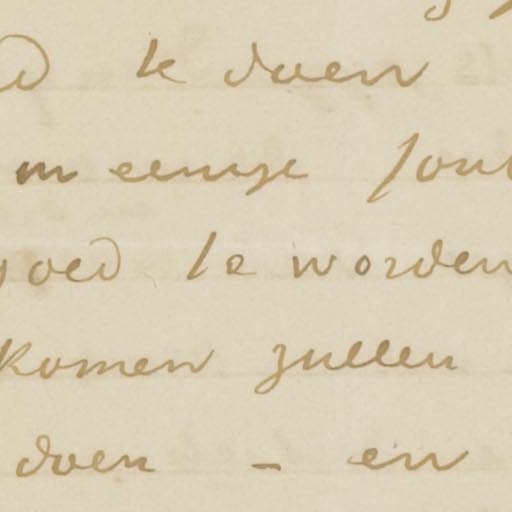 te doen
om eenige
goed te worden
komen zullen
doen - en